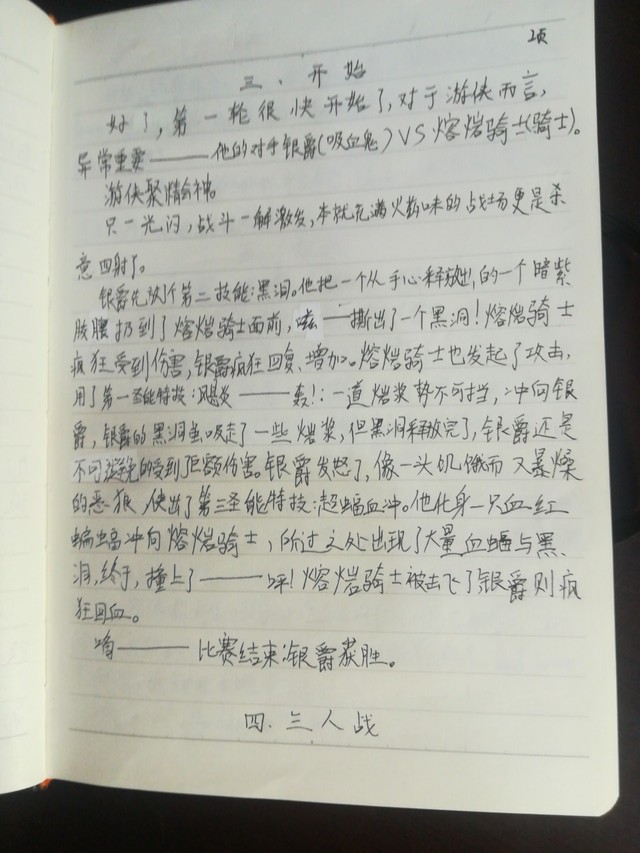 2页
三、开始
好了，第一轮很快开始了，对于游侠而言，
异常重要———他的对手银爵(吸血鬼)VS熔岩骑士(骑士)。
游侠聚精会神。
只一光闪，战斗一触激发，本就充满火药味的战场更是杀
意四射了。
银爵先放个第二技能：黑洞。他把一个从手心释放出的一个暗紫
胶膜扔到了熔岩骑士面前，嗞——撕出了一个黑洞！熔岩骑士
疯狂受到伤害，银爵疯狂回复、增加。熔岩骑士也发起了攻击，
用了第一圣能特技：炎———轰！：一道熔浆势不可挡，冲向银
爵，银爵的黑洞虽吸走了一些熔浆，但黑洞释放完了，银爵还是
不可避免的受到巨额伤害。银爵发怒了，像一头饥饿而又暴燥
的恶狼，使出了第三圣能特技：超蝠血冲。他化身一只血红
蝙蝠冲向熔岩骑士，所过之处出现了大量血蝠与黑
洞，终于，撞上了———呯！熔岩骑士被击飞了，银爵则疯
狂回血。
———比赛结束：银爵获胜。
四、三人战